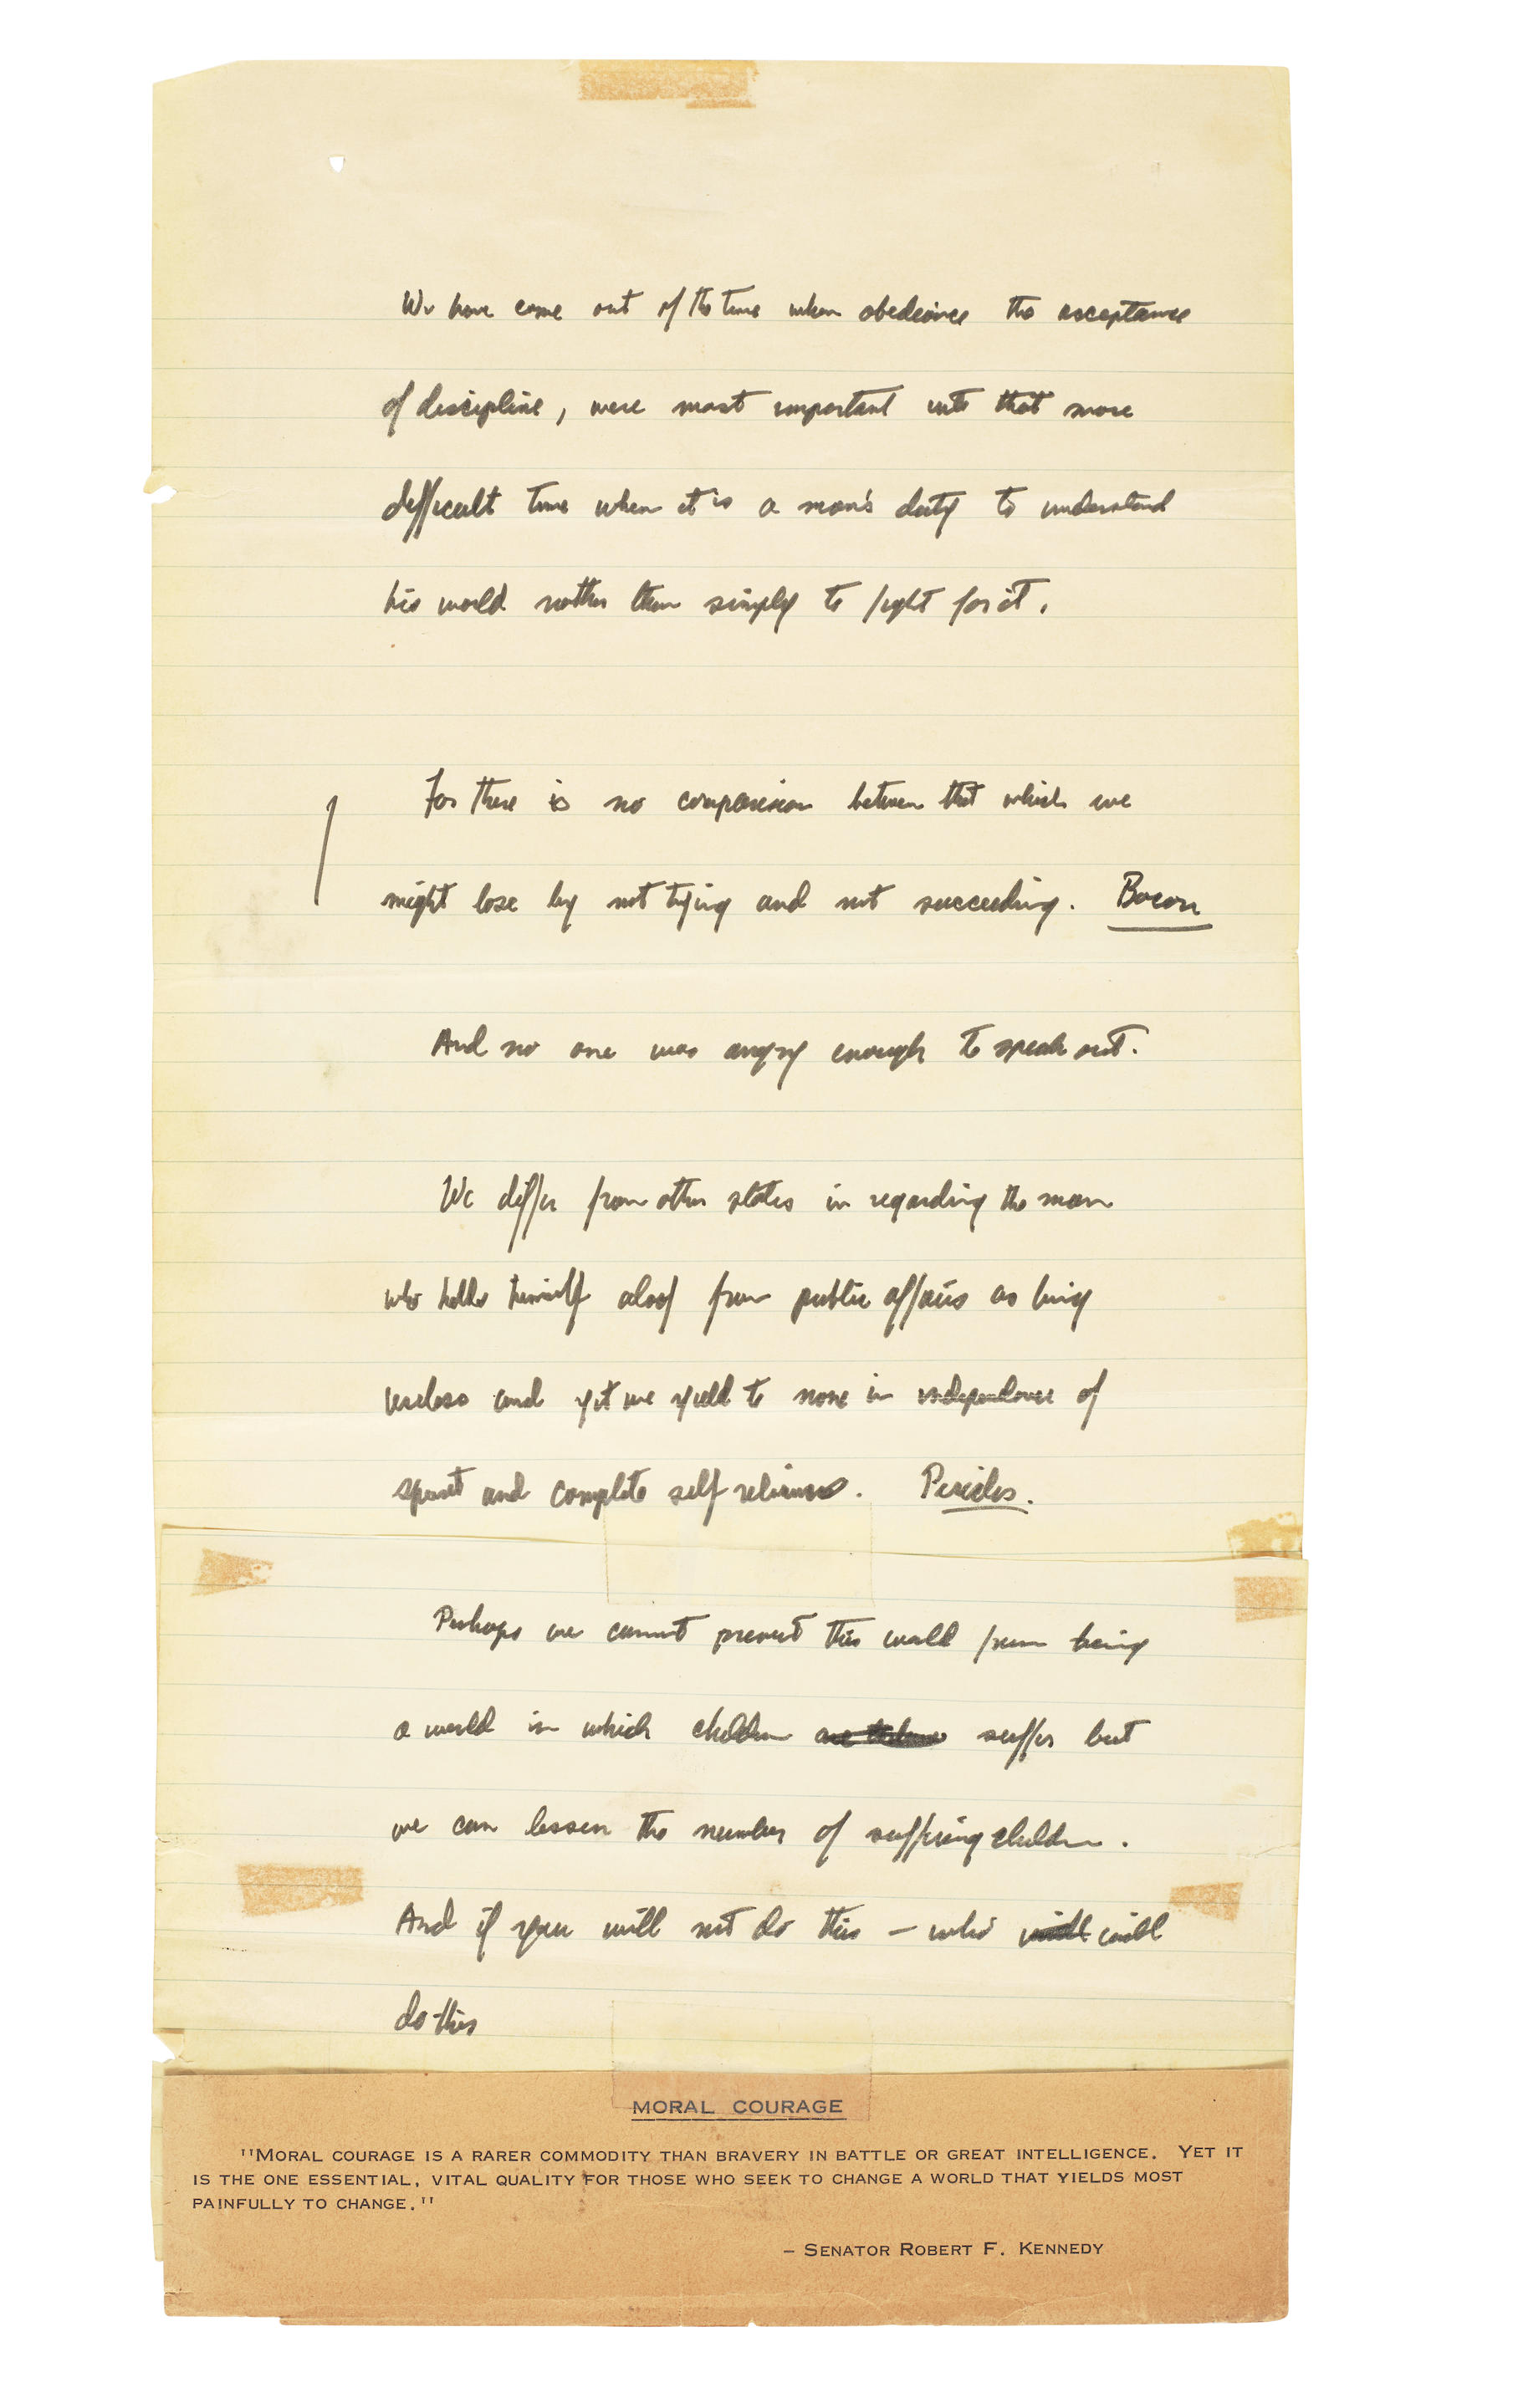 We have come out of the time when obedience the acceptance
of discipline, were most important into that more
difficult time when it is a man's duty to understand
his world rather than simply to fight for it.
For there is no comparision between that which we
might lose by not trying and not succeeding. Bacon
And no one was angry enough to speak out.
We differ from other states in regarding the man
who holds himself aloof from public affairs as being
useless and yet we yield to none in independence of
spirit and complete self reliance. Pericles.
Perhaps we cannot prevent this world from being
a world in which children suffer but
we can lessen the number of suffering children.
And if you will not do this – who will will
do this
MORAL COURAGE
"MORAL COURAGE IS A RARER COMMODITY THAN BRAVERY IN BATTLE OR GREAT INTELLIGENCE. YET IT
IS THE ONE ESSENTIAL, VITAL QUALITY FOR THOSE WHO SEEK TO CHANGE A WORLD THAT YIELDS MOST
PAINFULLY TO CHANGE."
– SENATOR ROBERT F. KENNEDY